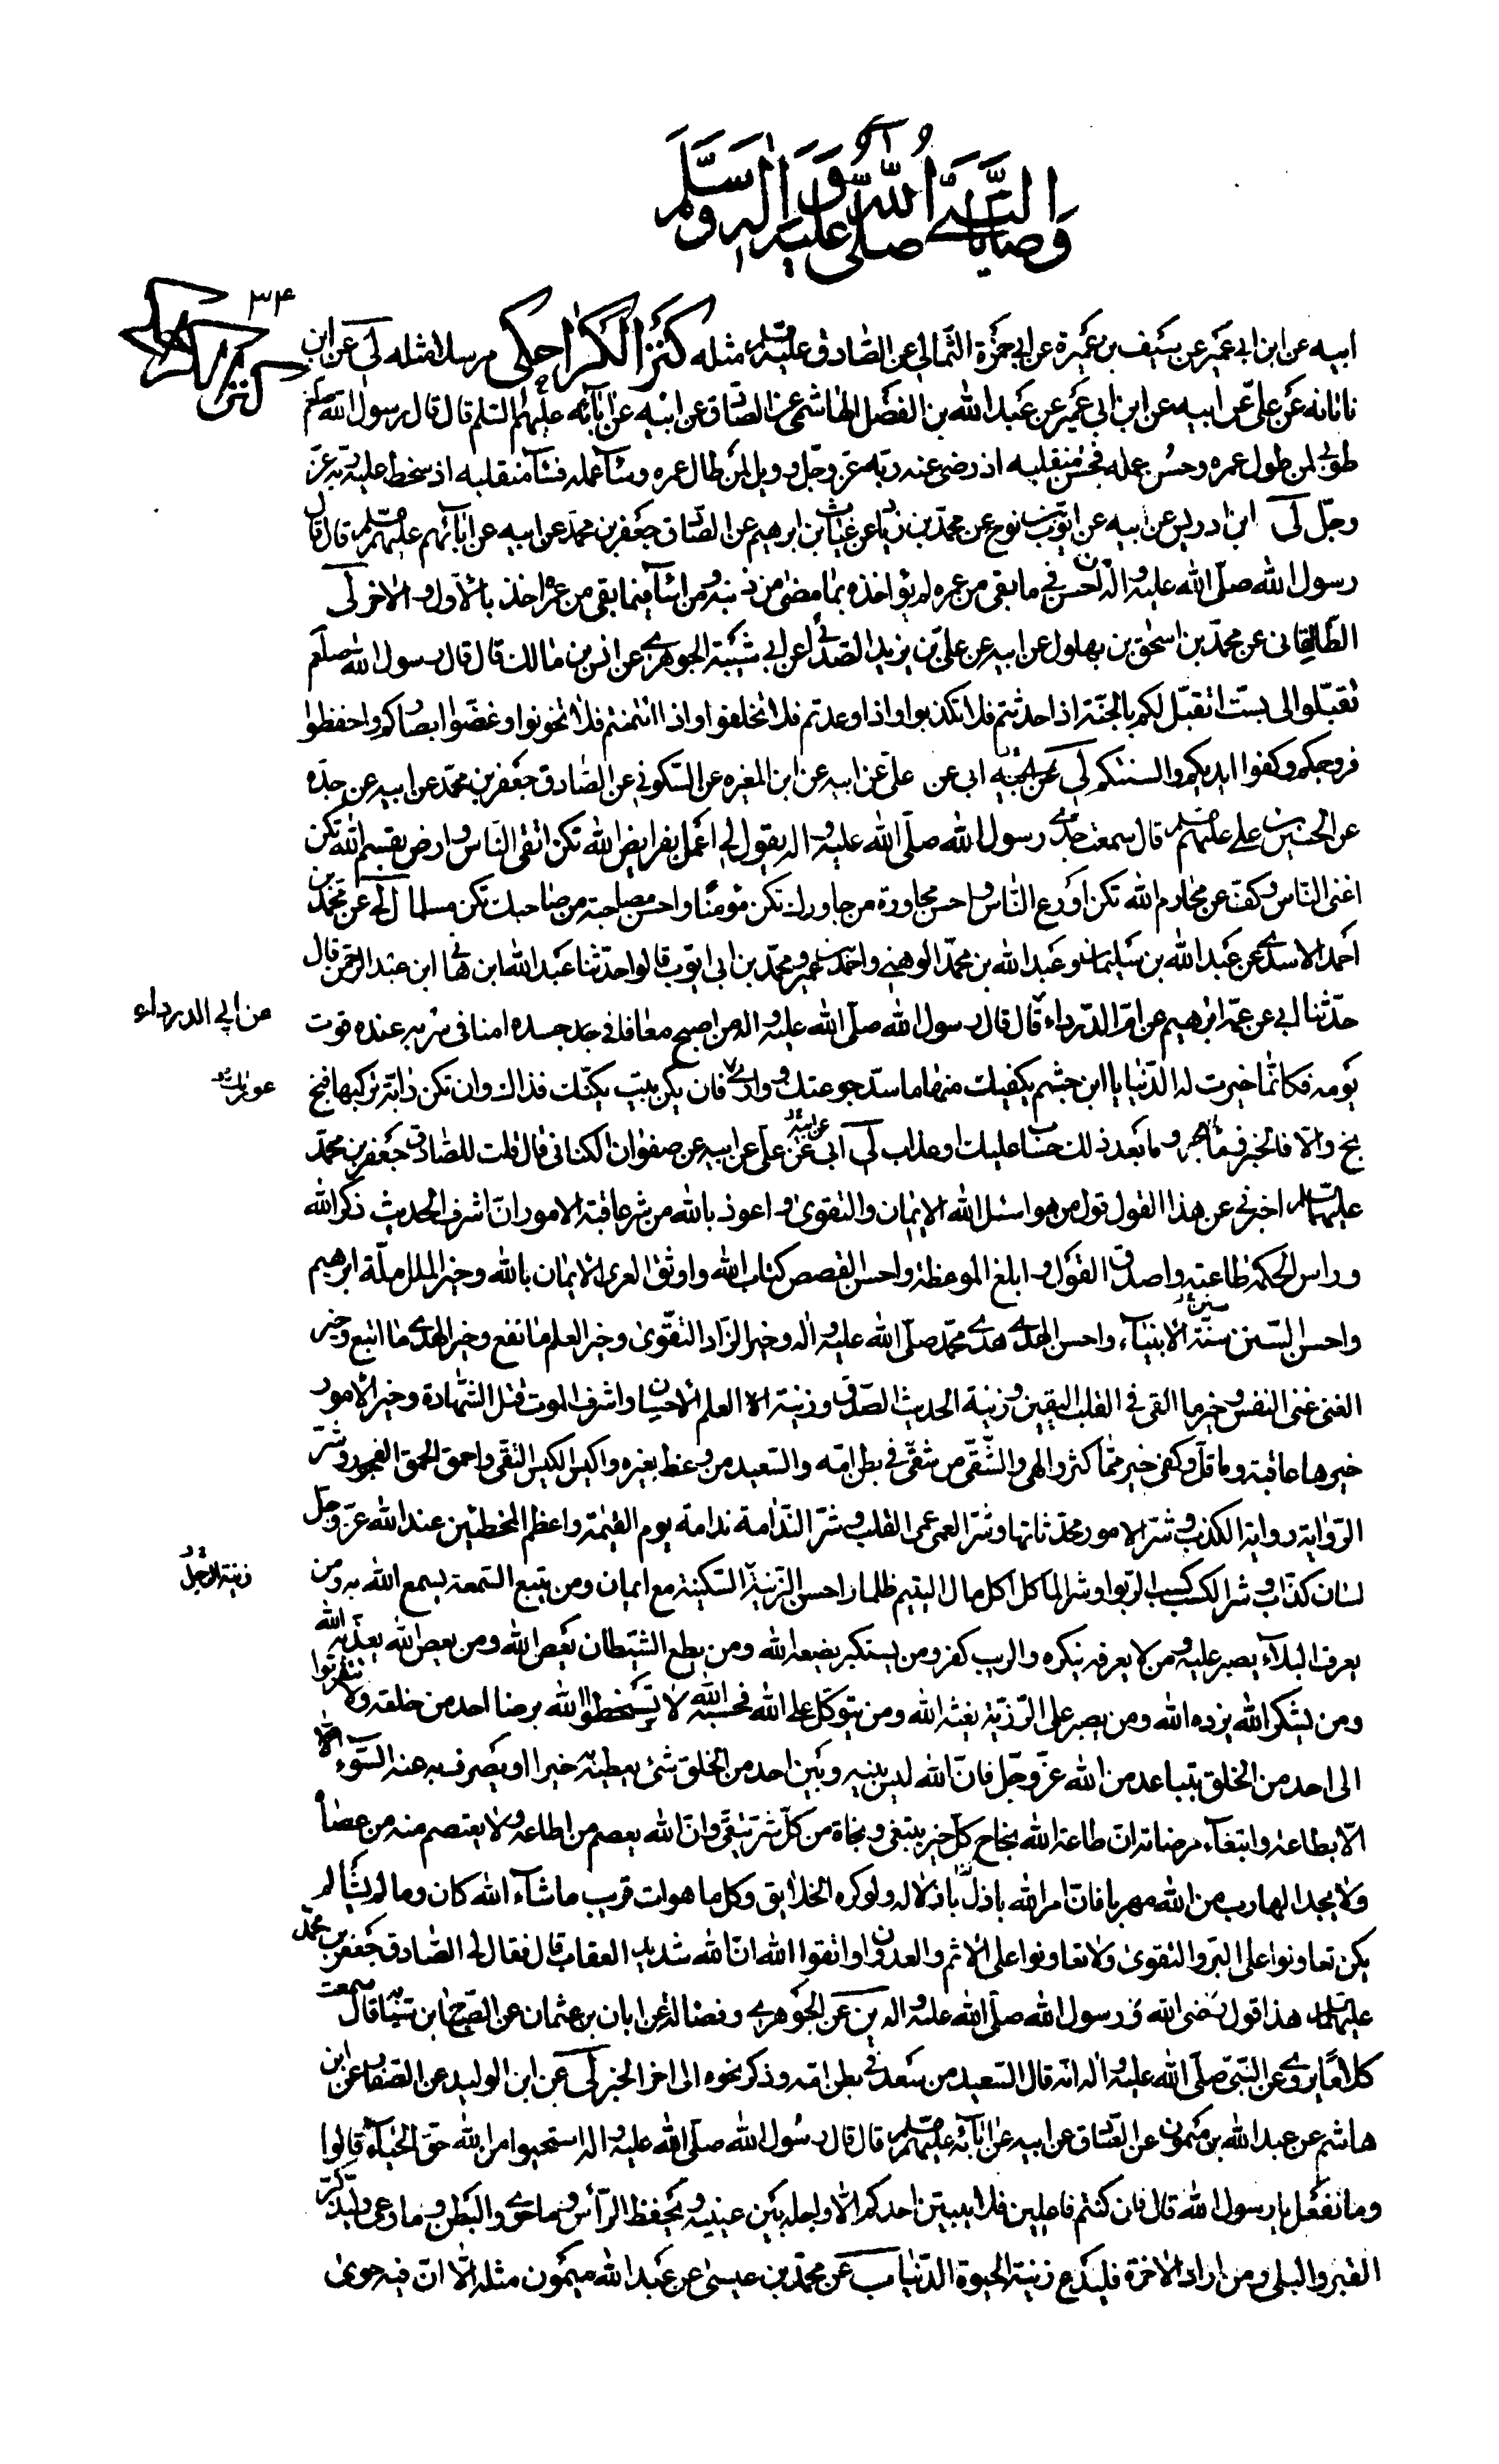 وصايا النبي صلى الله عليه وآله وسلم
٣٤
ابيه عن ابن ابي عمير عن سيف بن عميرة عن ابي حمزة الثمالي عن الصادق عليه السلم مثله كنز الكراجكى مرسلا مثله لى عن ابن
ناتانه عن علي عن ابيه عن ابن ابي عمير عن عبد الله بن الفضل الهاشمى عن الصادق عن ابيه عن اٰبائه عليهم السلم قال قال رسول الله صلعم
طوبى لمن طول عمره وحسن عمله فحسن منقلبه اذ رضى عنه ربه عز وجل وويل لمن طال عمره وسآء عمله فسآء منقلبه اذ سخط عليه ربه عز
وجل لى ابن ادريس عن ابيه عن ايوب بن نوح عن محمد بن زياد عن غياث بن ابرهيم عن الصادق جعفر بن محمد عن ابيه عن اٰبائهم عليهم السلم قال قال
رسول الله صلى الله عليه واله من احسن في ما بقى من عمره لم يؤاخذه بما مضى من ذنبه ومن اسآء فيما بقى من عمره اخذ بالاول والاخر لى
الطالقانى عن محمد بن اسحق بن بهلول عن ابيه عن علي بن يزيد الصدائى عن ابي شيبة الجوهرى عن انس بن مالك قال قال رسول الله صلعم
تقبلوا الى بست اتقبل لكم بالجنة اذا حدثتم فلا تكذبوا واذا وعدتم فلا تخلفوا واذا ائتمنتم فلا تخونوا وغضوا ابصاركم واحفظوا
فروجكم وكفوا ايديكم والسنتكم لى ابى عن على عن ابيه عن ابن المغيره عن السكوني عن الصادق جعفر بن محمد عن ابيه عن جده
عن الحسين بن علي عليهم السلم قال سمعت جدي رسول الله صلى الله عليه واله يقول لي اعمل بفرايض الله تكن اتقى الناس وارض بقسم الله تكن
اغنى الناس وكف عن محارم الله تكن اورع الناس واحسن مجاورة من جاورك تكن مؤمنا واحسن مصاحبة من صاحبك تكن مسلما لى عن محمد بن
احمد الاسدى عن عبد الله بن سليمان وعبد الله بن محمد الوهبى واحمد بن عمير ومحمد بن ابى ايوب قالوا حدثنا عبد الله ابن هانى ابن عبد الرحمن قال
حدثنا ابي عن عمه ابرهيم عن ام الدرداء قال قال رسول الله صلى الله عليه واله من اصبح معافا في جسده امنا في سربه عنده قوت
من ابي الدرداء
يومه فكانما خيرت له الدنيا يا ابن جشم يكفيك منها ما سد جوعتك ووارى فان يكن بيت يكنك فذاك وان تكن دابة تركبها فبخ
عورتك
بخ والا فالخبز وماء الجر وما بعد ذلك حساب عليك او عذاب لى ابى عن على عن ابيه عن صفوان الكنانى قال قلت للصادق جعفر بن محمد
عن ابيه
عليهما السلم اخبرني عن هذا القول قول من هو اسئل الله الايمان والتقوى واعوذ بالله من شر عاقبة الامور ان اشرف الحديث ذكر الله
وراس الحكمة طاعته واصدق القول وابلغ الموعظة واحسن القصص كتاب الله واوثق العرى الايمان بالله وخير الملل ملة ابرهيم
واحسن السنن سنة الانبيآء واحسن الهدى هدى محمد صلى الله عليه واله وخير الزاد التقوى وخير العلم ما نفع وخير الهدى ما اتبع وخير
الغنى غنى النفس وخير ما القى في القلب اليقين وزينة الحديث الصدق وزينة العلم الاحسان واشرف الموت قتل الشهادة وخير الامور
خيرها عاقبة وما قل وكفى خير مما كثر والهى والشقي من شقي في بطن امه والسعيد من وعظ بغيره واكيس الكيس التقى واحمق الحمق الفجور وشر
الرواية رواية الكذب وشر الامور محدثاتها وشر العمى عمى القلب وشر الندامة ندامة يوم القيمة واعظم المخطئين عند الله عز وجل
لسان كذاب وشر الكسب كسب الربوا وشر الماكل اكل مال اليتيم ظلما واحسن الزينة السكينة مع ايمان ومن يتبع السمعة يسمع الله به ومن
زينة الرجل
يعرف البلاء يصبر عليه ومن لا يعرفه ينكره والريب كفر ومن يستكبر يضعه الله ومن يطع الشيطان يعص الله ومن يعص الله يعذبه الله
ومن يشكر الله يزده الله ومن يصبر على الرزية يغثه الله ومن يتوكل على الله فحسبه الله لا تسخطوا الله برضا احد من خلقه ولا تتقربوا
الى احد من الخلق بتباعد من الله عز وجل فان الله ليس بينه وبين احد من الخلق شئ يعطيه به خيرا او يصرف به عنه السوء
الا بطاعته وابتغآء مرضاته ان طاعة الله نجاح كل خير يبتغى ونجاة من كل شر يتقى وان الله يعصم من اطاعه ولا يعتصم منه من عصاه
ولا يجد الهارب من الله مهربا فان امر الله نازل باذلاله ولو كره الخلايق وكل ما هو ات قريب ما شاء الله كان وما لم يشأ لم
يكن تعاونوا على البر والتقوى ولا تعاونوا على الاثم والعدوان واتقوا الله ان الله شديد العقاب قال فقال لي الصادق جعفر بن محمد
عليهما السلم هذا قول رسول الله صلى الله عليه واله ين عن الجوهري وفضاله عن ابان بن عثمان عن الصباح ابن سيابه قال سمعت
كلاما يروى عن النبي صلى الله عليه واله انه قال السعيد من سعد في بطن امه وذكر نحوه الى اخر الخبر لى عن ابن الوليد عن الصفار عن ابن
هاشم عن عبد الله بن ميمون عن الصادق عن ابيه عن اٰبائه عليهم السلم قال قال رسول الله صلى الله عليه واله استحيوا من الله حق الحيآء قالوا
وما نفعل يا رسول الله قال فان كنتم فاعلين فلا يبيتن احدكم الا واجله بين عينيه وليحفظ الرأس وما حوى والبطن وما وعى وليذكر
القبر والبلى ومن اراد الاخرة فليدع زينة الحيوة الدنيا ب عن محمد بن عيسى عن عبد الله ميمون مثله الا ان فيه حوى